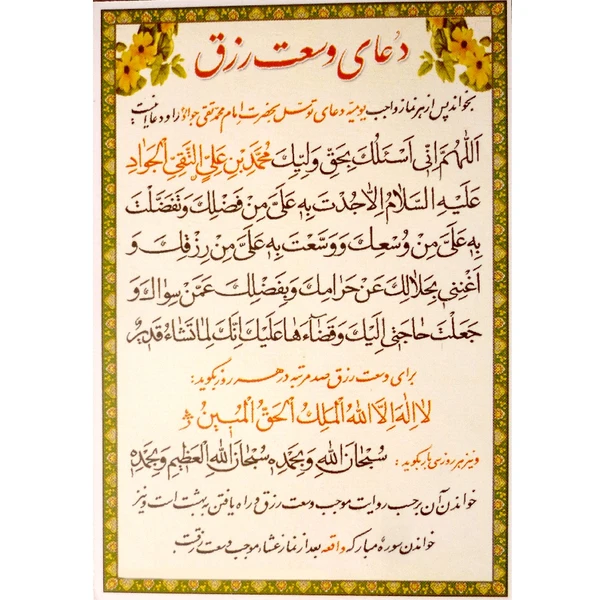 دعای وسعت رزق
بخواند پس از هر نماز واجب یومیّه دعای توسّل بحضرت امام محمد تقی جواد را و دعا اینست
اَللّٰهُمَّ اِنّی اَسْئَلُكَ بِحَقِّ وَلِیِّكَ مُحَمَّدِ بْنِ عَلِیٍّ التَّقِیِّ الْجَوادِ
عَلَیْهِ السَّلامُ اِلّا جُدْتَ بِهِ عَلَیَّ مِنْ فَضْلِكَ وَ تَفَضَّلْتَ
بِهِ عَلَیَّ مِنْ وُسْعِكَ وَ وَسَّعْتَ بِهِ عَلَیَّ مِنْ رِزْقِكَ وَ
اَغْنِنی بِحَلالِكَ عَنْ حَرامِكَ وَ بِفَضْلِكَ عَمَّنْ سِواكَ وَ
جَعَلْتَ حاجَتی اِلَیْكَ وَ قَضآءَها عَلَیْكَ اِنَّكَ لِما تَشآءُ قَدیرٌ
برای وسعت رزق صد مرتبه در هر روز بگوید:
لا اِلٰهَ اِلَّا اللهُ الْمَلِكُ الْحَقُّ الْمُبینُ
و نیز هر روز سی بار بگوید: سُبْحانَ اللهِ وَ بِحَمْدِهِ سُبْحانَ اللهِ الْعَظیمِ وَ بِحَمْدِهِ
خواندن آن بر حسب روایت موجب وسعت رزق و راه یافتن به بهشت است و نیز
خواندن سوره مبارکه واقعه بعد از نماز عشاء موجب وسعت رزقست